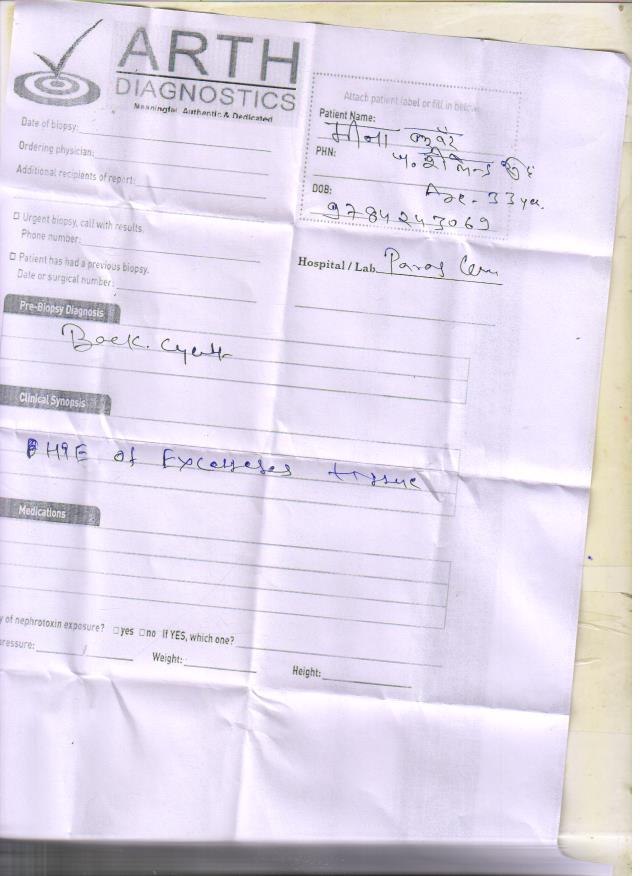 ARTH
DIAGNOSTICS
Meaningful, Authentic & Dedicated
Attach patient label or fill in below
Patient Name:
मीना कुवँर
Date of biopsy:
PHN:
Ordering physician:
Additional recipients of report:
DOB:
Age - 33 yr.
9784243069
☐ Urgent biopsy, call with results.
Phone number:
Hospital / Lab Paras
☐ Patient has had a previous biopsy.
Date or surgical number:
Pre-Biopsy Diagnosis
Back. cyst
Clinical Synopsis
HPE of tissue
Medications
y of nephrotoxin exposure? ☐ yes ☐ no If YES, which one?
ressure: / Weight: Height: